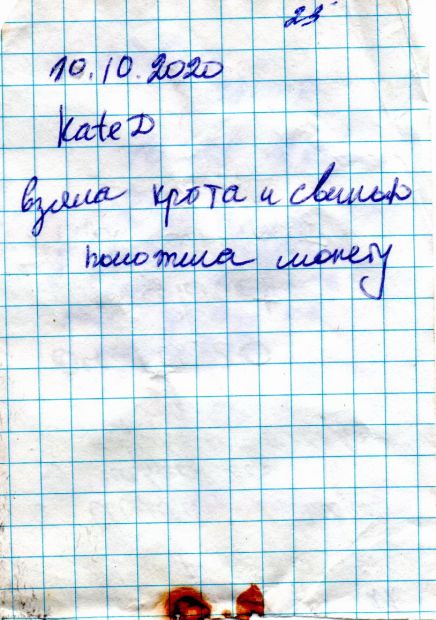 23
10.10.2020
KateD
взяла крота и свинью
положила монету